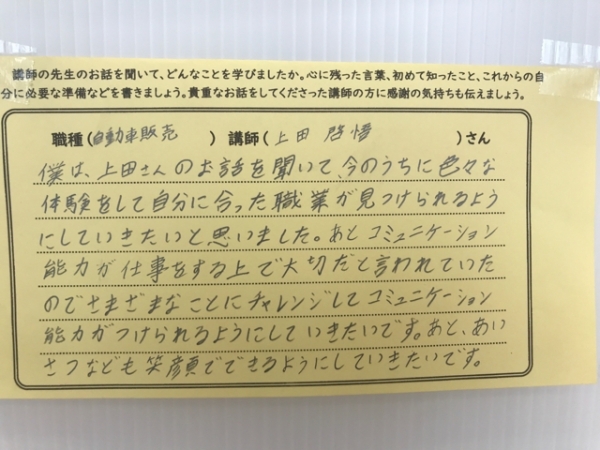 講師の先生のお話を聞いて、どんなことを学びましたか。心に残った言葉、初めて知ったこと、これからの自
分に必要な準備などを書きましょう。貴重なお話をしてくださった講師の方に感謝の気持ちも伝えましょう。
職種(自動車販売)講師(上田 啓悟)さん
僕は、上田さんのお話を聞いて、今のうちに色々な
体験をして自分に合った職業が見つけられるよう
にしていきたいと思いました。あとコミュニケーション
能力が仕事をする上で大切だと言われていた
のでさまざまなことにチャレンジしてコミュニケーション
能力がつけられるようにしていきたいです。あと、あい
さつなども笑顔でできるようにしていきたいです。